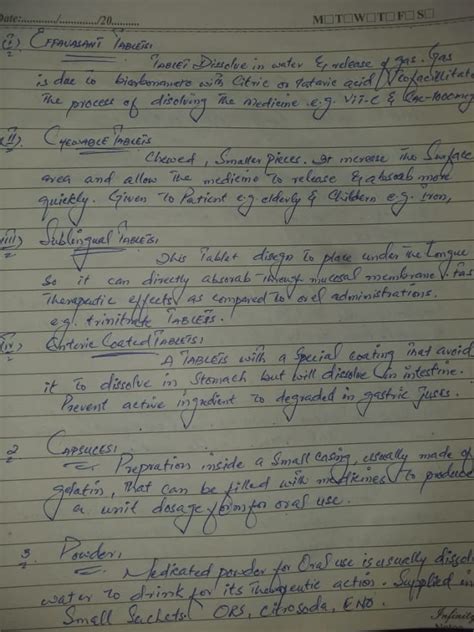 Date:.........../............/20.........
M T W T F S
(i) EFFAVASANT TABLETS:
TABLET Dissolve in water & release of gas. Gas
is due to biorbonamero with Citric or Tataric acid / Neofacillitate
The process of disolving The medicine e.g. Vit-C & Cac-1000mg
(ii) CHEWABLE TABLETS
Chewed, Smaller pieces. It increase The Surface
area and allow The medicine to release & absoab more
quickly. Given To Patient e.g elderly & Childern e.g. iron,
(iii) Sublingual TABLETS:
This Tablet disegn To place under the Tongue
So it can directly absorab through mucosal membrane. Fas
Therapeutic effects as compared to oral administrations.
e.g. trinitrate TABLETS.
(iv) Enteric Coated TABLETS:
A TABLETS with a Special coating that avoid
it To dissolve in Stomach but will dissolve in intestine.
Prevent active ingredient To degraded in gastric Juses.
2 CAPSULES:
Prepration inside a Small casing, usually made of
gelatin, That can be filled with medicines To produce
a unit dosage form for oral use.
3. Powder:
Medicated powder for Oral use is usually dissol
water To drink for its Therapeutic action. Supplied in
Small Sachets. ORS, Citrosoda, ENO.
Infinity